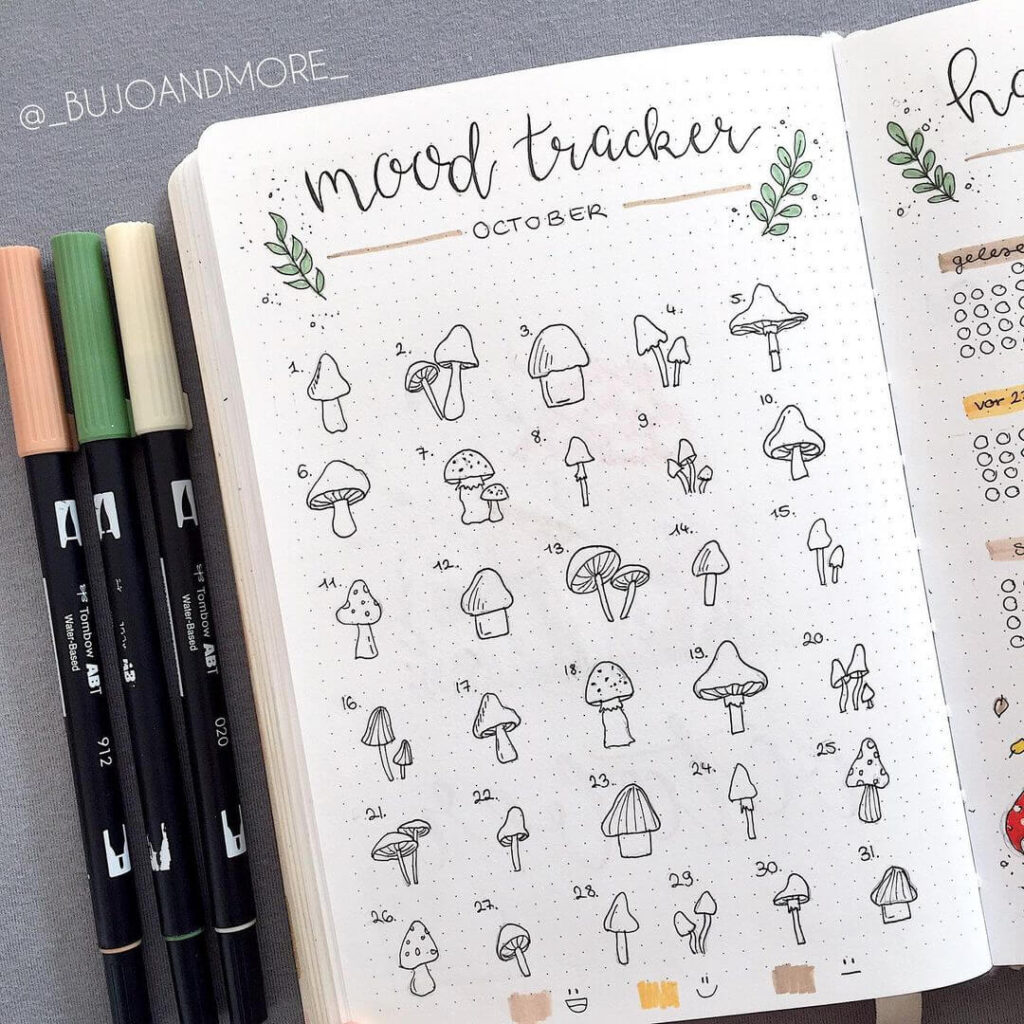 @_BUJOANDMORE_
mood tracker
OCTOBER
1.
2.
3.
4.
5.
6.
7.
8.
9.
10.
11.
12.
13.
14.
15.
16.
17.
18.
19.
20.
21.
22.
23.
24.
25.
26.
27.
28.
29.
30.
31.
Tombow ABT
Water-Based
912
Tombow ABT
Water-Based
020